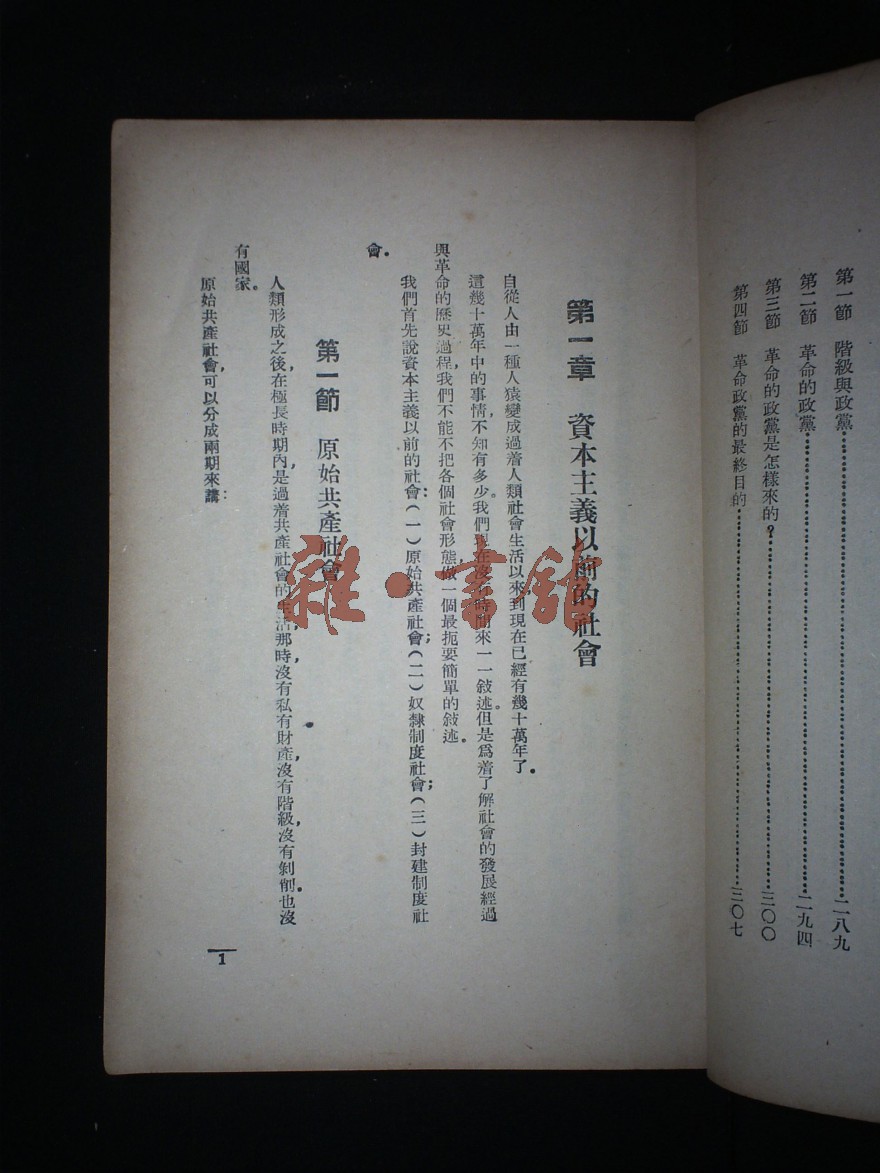 第一節 階級與政黨……二八九
第二節 革命的政黨……二九四
第三節 革命的政黨是怎樣來的？……三〇〇
第四節 革命政黨的最終目的……三〇七
第一章 資本主義以前的社會
自從人由一種人猿變成過着人類社會生活以來到現在已經有幾十萬年了。
這幾十萬年中的事情，不知有多少。我們現在沒有時間來一一敍述。但是爲着了解社會的發展經過
與革命的歷史過程，我們不能不把各個社會形態做一個最扼要簡單的敍述。
我們首先說資本主義以前的社會：（一）原始共產社會；（二）奴隸制度社會；（三）封建制度社
會。
第一節 原始共產社會
人類形成之後，在極長時期內，是過着共產社會的生活，那時沒有私有財產，沒有階級，沒有剝削，也沒
有國家。
原始共產社會，可以分成兩期來講：
1
雜·書館